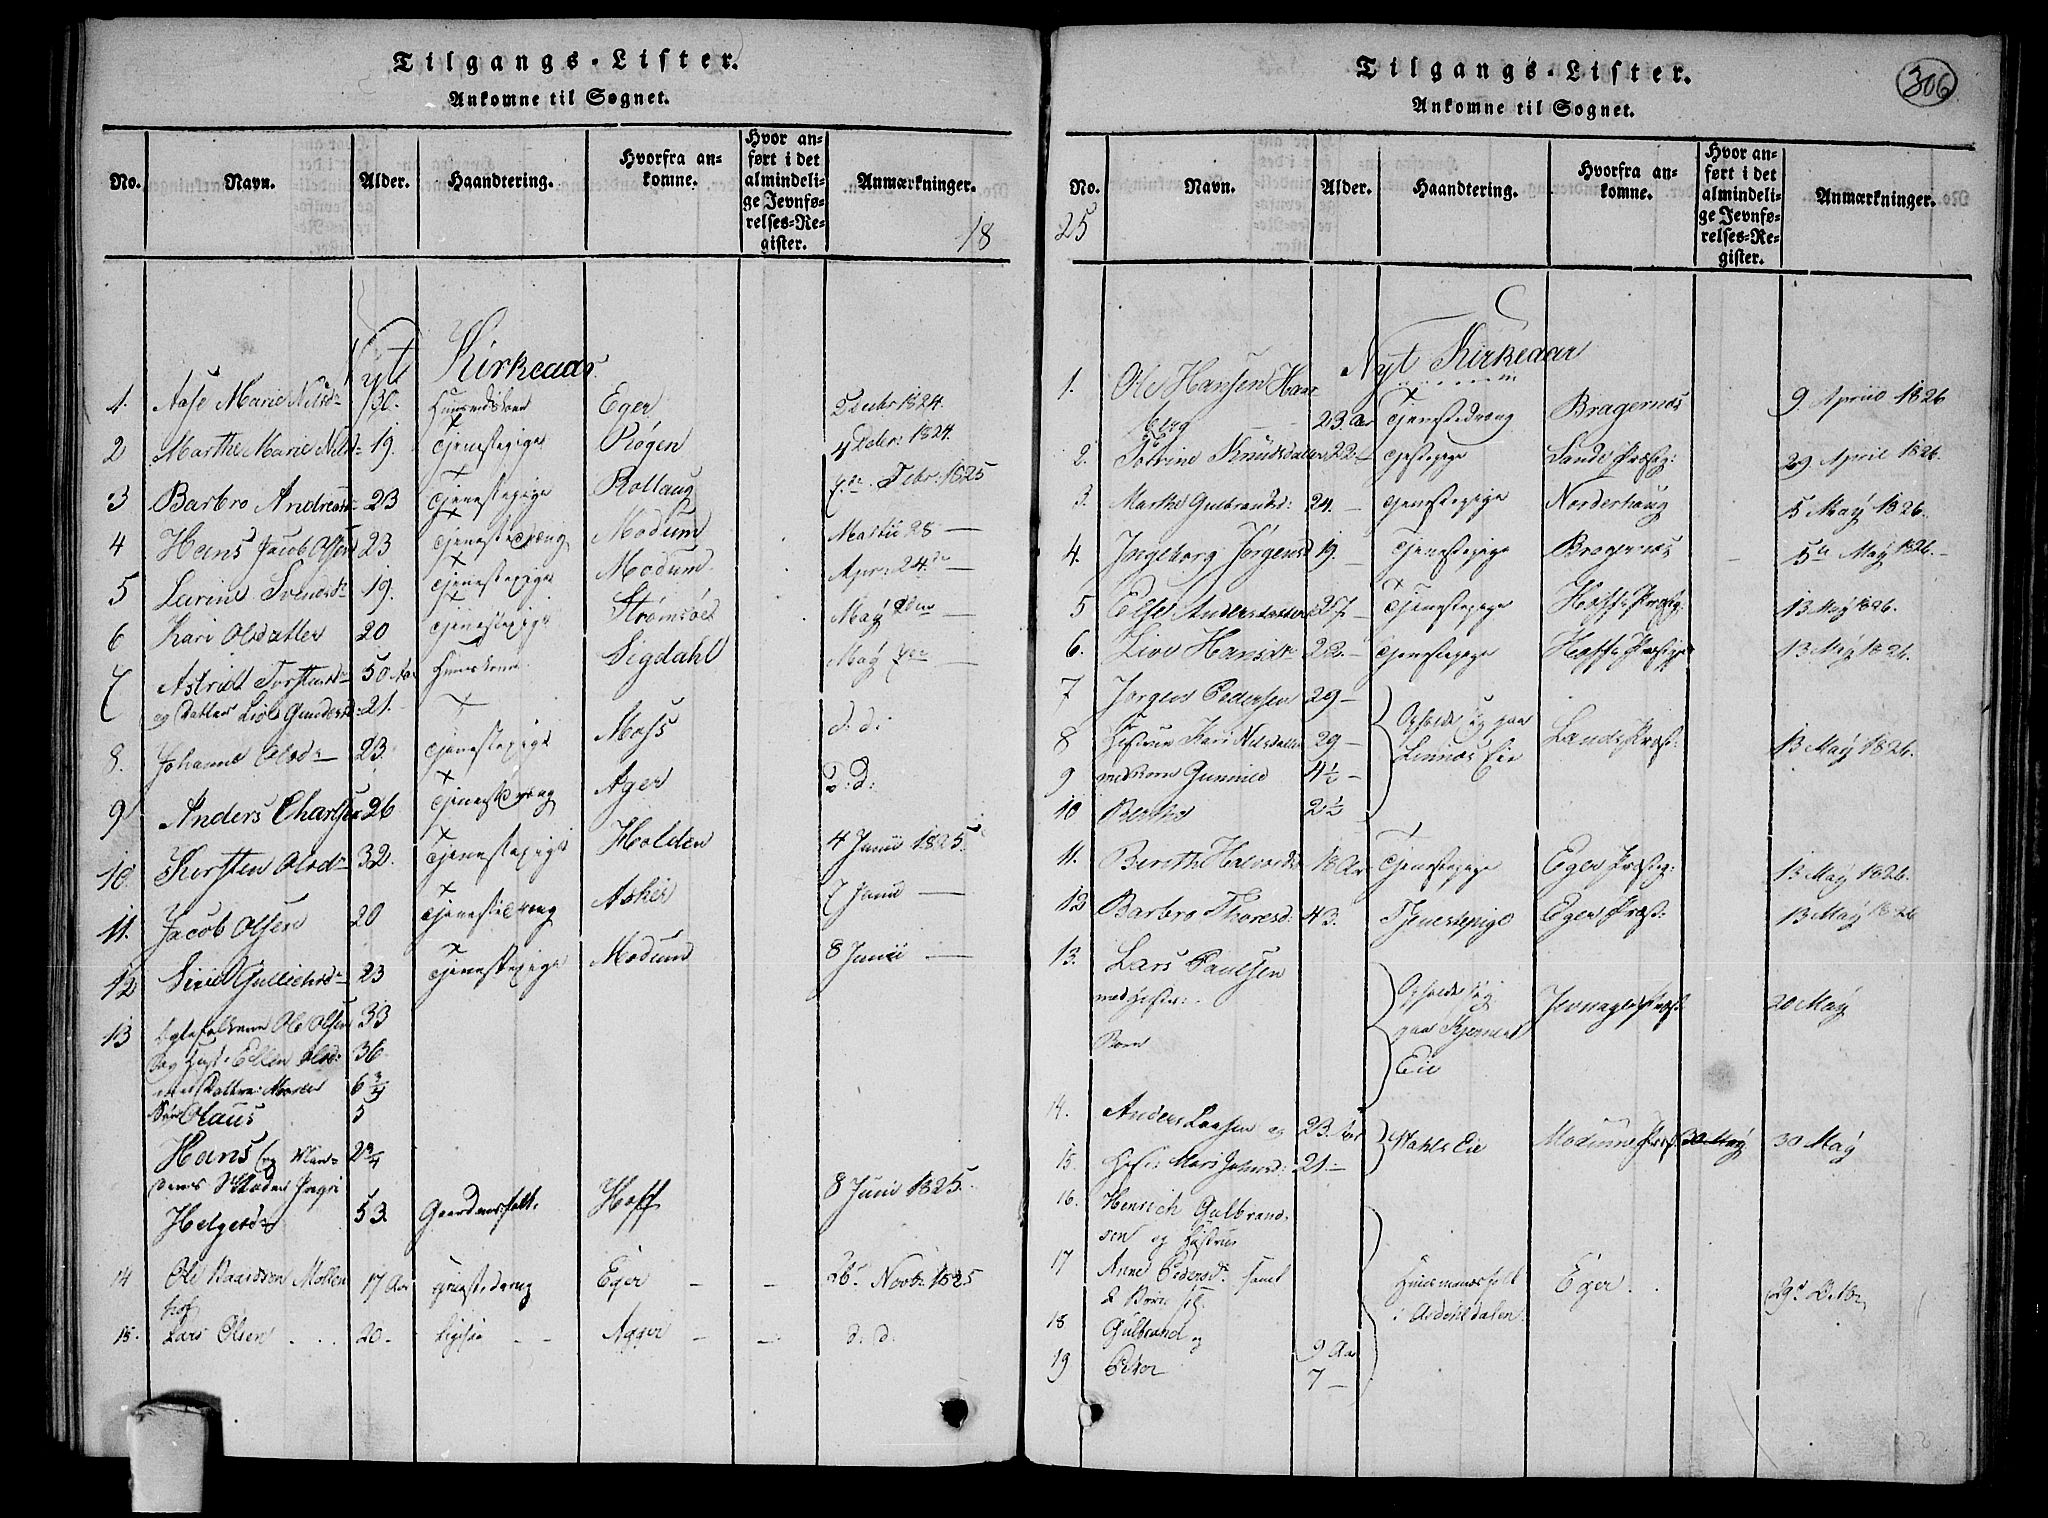 306
Tilgangs-Lister.
Ankomne til Sognet.
No. Navn. Alder. Haandtering. Hvorfra ankomne. Hvor anført i det almindelige Jevnførelses-Register. Anmærkninger.
18
Nyt Kirkeaar.
1. Aase Marie Nilsd 30. Eger Decbr 1824.
2 Marthe Marie Nilsd: 19. Tjenestepige Røgen 4 Decbr: 1824.
3 Barbro Andreasd 23 Tjenestepige Rollaug Febr: 1825
4 Hans Jacob Olsen 23 Tjenestedreng Modum Martii 28 —
5 Larine Svendsd 19. Tjenestepige Modum Apr: 24. —
6 Kari Olsdatter 20 Tjenestepige Strømsøe May —
7 Astrid Torstensd 50 Aar Sigdahl May —
og Datter Live Gundersd: 21.
8. Johanne Olsd 23. Tjenestepige Moss d: d:
9 Anders Charlsen 26 Tjenestedreng Ager D: d:
10. Kersten Olsd 32. Tjenestepige Holden 4 Junii 1825.
11. Jacob Olsen 20 Tjenestedreng Asker 7 Junii —
12 Siri Gullichsd 23 Tjenestepige Modum 8 Junii —
13 Ole Olsen 33
og Ellen Olsd: 36
6 3/4
Søn Olaus 5
Hans og Man= 2 3/4
dens Moder Ingri
Helgesd 53. Gaardmansfolk. Hoff 8 Junii 1825.
14 Ole Baardsen Mollen 17 Aar Tjenestedreng Eger — — 26 Novbr: 1825
hof
15. Lars Olsen . . . 20. ligesaa — — Agger — — d: d:
Tilgangs-Lister.
Ankomne til Sognet.
No. Navn. Alder. Haandtering. Hvorfra ankomne. Hvor anført i det almindelige Jevnførelses-Register. Anmærkninger.
25
Nyt Kirkeaar
1. Ole Hansen Haa
berg 23 Aar Tjenestedreng Bragernæs 9 April 1826
2. Torine Knudsdatter 22 Tjenestepige Sande Præstg: 29 April 1826.
3. Marthe Gulbrandsd: 24. — Tjenestepige Norderhaug 5 May 1826.
4. Ingeborg Jørgensd 19. — Tjenestepige Bragernæs 5 May 1826.
5 Else Andersdatter 27 Tjenestepige Hoffs Præstg: 13 May 1826.
6. Live Hansd 22. — Tjenestepige Hoffs Præstg: 13 May 1826.
7 Jørgen Pedersen 29 — Opholde sig paa
8 Hustrue Kari Nilsdatter 29 — Linnæs Eie Lands Præst: 13 May 1826.
9 med Børn Gunnild 4 1/2 —
10 Berthe 2 1/2
11. Berith Halvordsd 18 Aar Tjenestepige Eger Præstg: 13 May 1826.
12 Barbro Thoresd: 43. Tjenestepige Eger Præst: 13 May 1826
13. Lars Paulsen
med Hustr: Opholde sig Jevnager Præst: 20 May
Børn paa Eie
14. Anders Larsen og 23. Aar Wahls Eie Modums Præst 30 May 30 May
15. Hust: Mari Johnsd: 21.
16. Henrich Gulbrand-
sen og Hustrue
17 Anne Pedersd: samt Huusmansfolk Eger
2 Børn
18 Gulbrand og 9 Aar
19 Peder 7 —